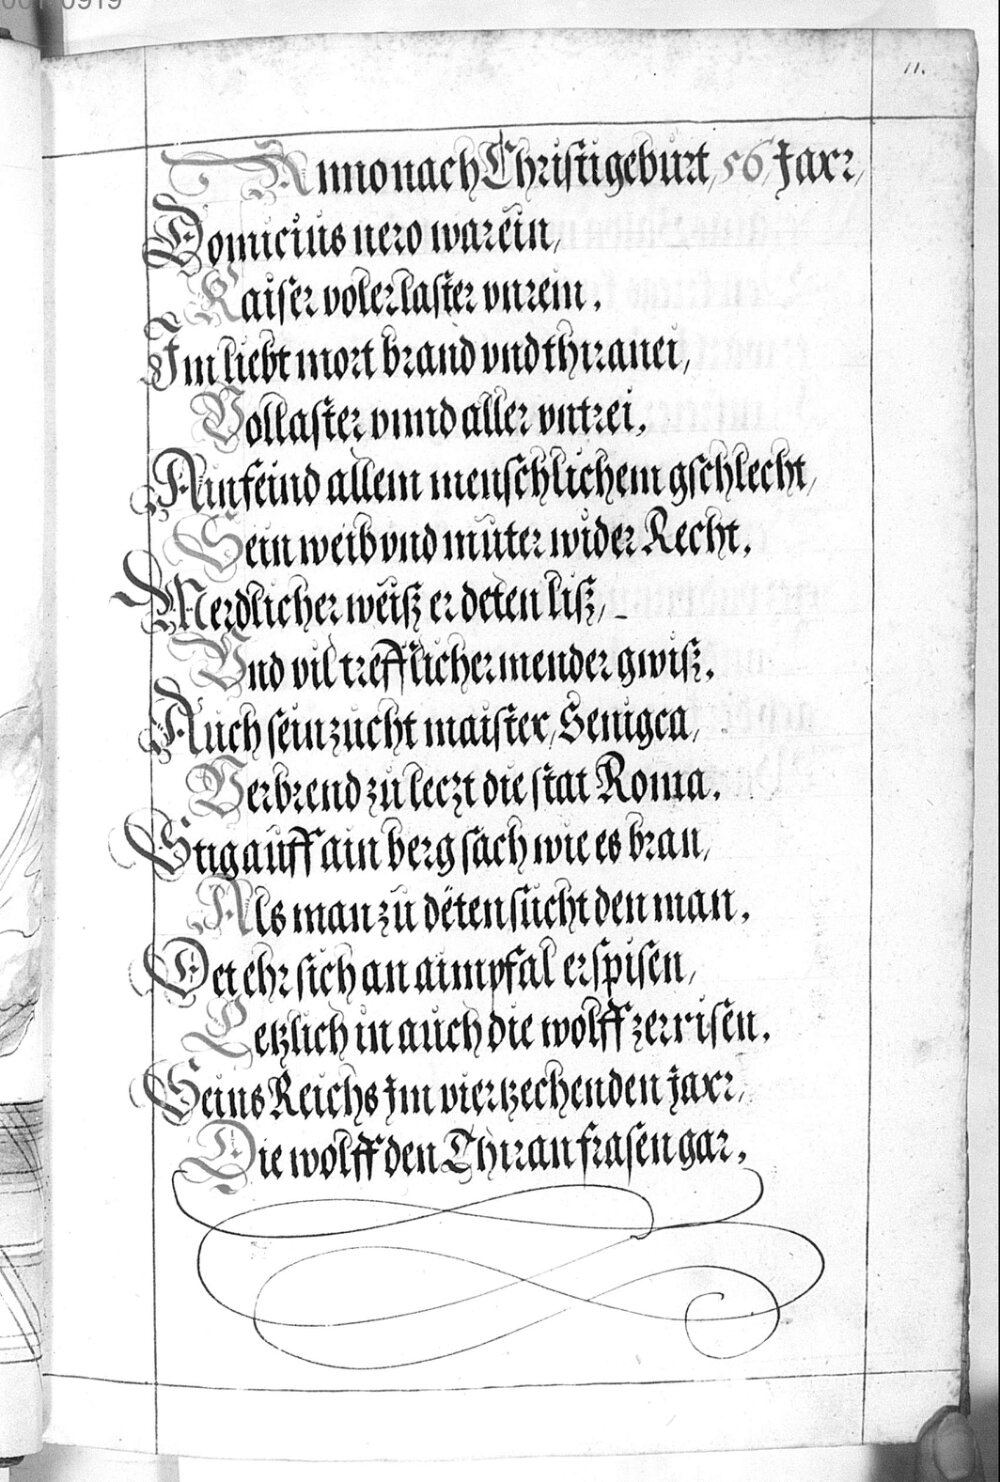 11.
Anno nach Christi geburt, 56, Jaxr,
Domicius nero war ein,
Kaiser voler laster vnrein.
Im liebt mort brand vnd thiranei,
Vol laster vnnd aller vntrei,
Ain feind allem menschlichem gschlecht,
Sein weib vnd muter wider Recht.
Merdlicher weiß er deten liß,
Vnd vil trefflicher mender gwiß.
Auch sein zucht maister, Senigca,
Verbrend zu leczt die stat Roma.
Stig auff ain berg sach wie es bran,
Als man zu deten sucht den man.
Det ehr sich an aim pfal erspisen,
Letzlich in auch die wolff zerrisen.
Seins Reichs Im viertzechenden jaxr,
Die wolff den Thiran frasen gar.